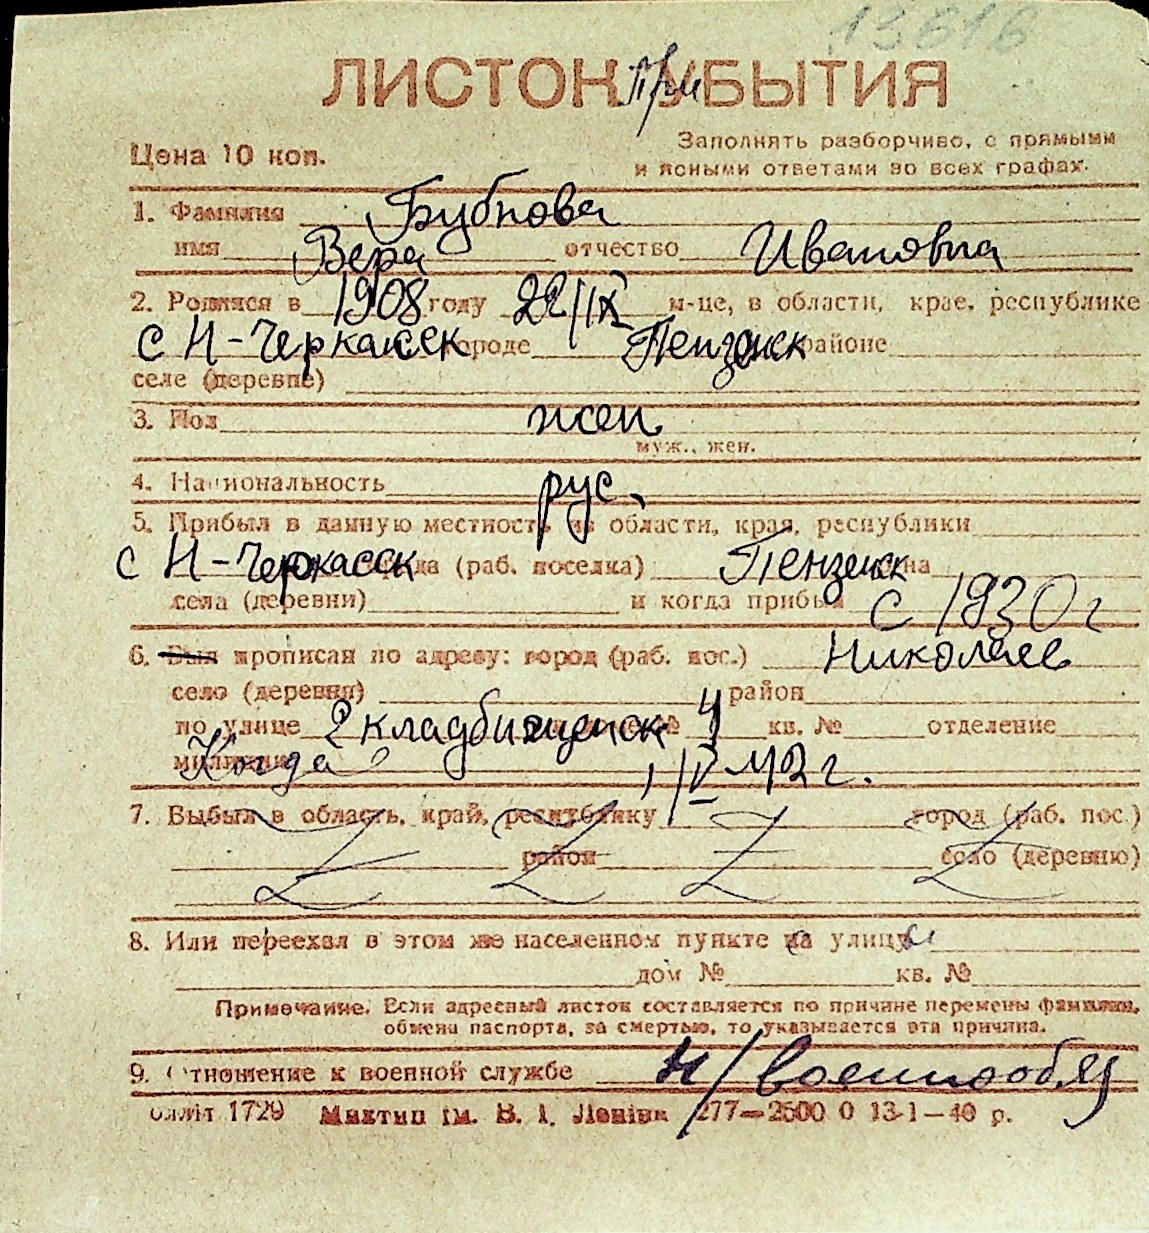 13616
ЛИСТОК При УБЫТИЯ
Цена 10 коп.
Заполнять разборчиво, с прямыми
и ясными ответами во всех графах.
1. Фамилия Бубнова
имя Вера отчество Ивановна
2. Родился в 1908 году 22/IX м-це, в области, крае, республике
с Н-Черкасск городе Пензенск районе
селе (деревне)
3. Пол жен
муж., жен.
4. Национальность рус.
5. Прибыл в данную местность из области, края, республики
с Н-Черкасск города (раб. поселка) Пензенск
села (деревни) и когда прибыл с 1930 г
6. Был прописан по адресу: город (раб. пос.) Николаев
село (деревня) район
по улице 2 кладбищенск № 4 кв. № отделение
милиции Когда 1/V-42 г.
7. Выбыл в область, край, республику город (раб. пос.)
район село (деревню)
8. Или переехал в этом же населенном пункте на улицу
дом № кв. №
Примечание. Если адресный листок составляется по причине перемены фамилии,
обмена паспорта, за смертью, то указывается эта причина.
9. Отношение к военной службе н/военнообяз
1729 Миктип ім. В. І. Леніна 277—2500 0 13-1—40 р.